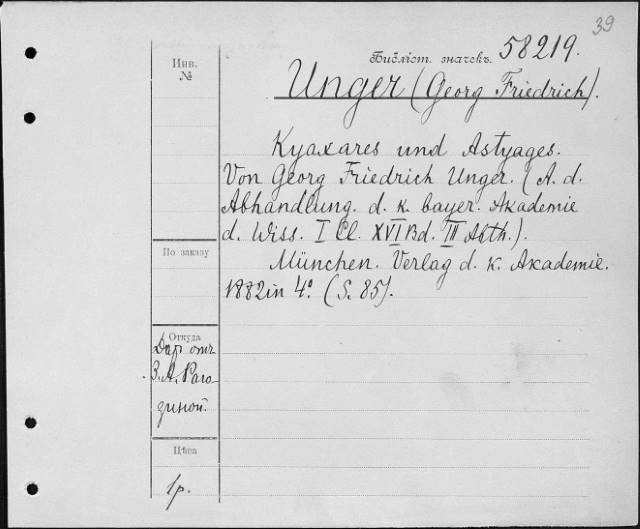 39
Библіот. значекъ. 58219.
Инв.
№
Unger (Georg Friedrich).
Kyaxares und Astyages.
Von Georg Friedrich Unger. (A. d.
Abhandlung. d. k. bayer. Akademie
d. Wiss. I Cl. XVI Bd. III Abth.).
По заказу
München. Verlag d. k. Akademie.
1882 in 4°. (S. 85).
Откуда
Даръ отъ
З. А. Раго-
зиной.
Цѣна
1 р.